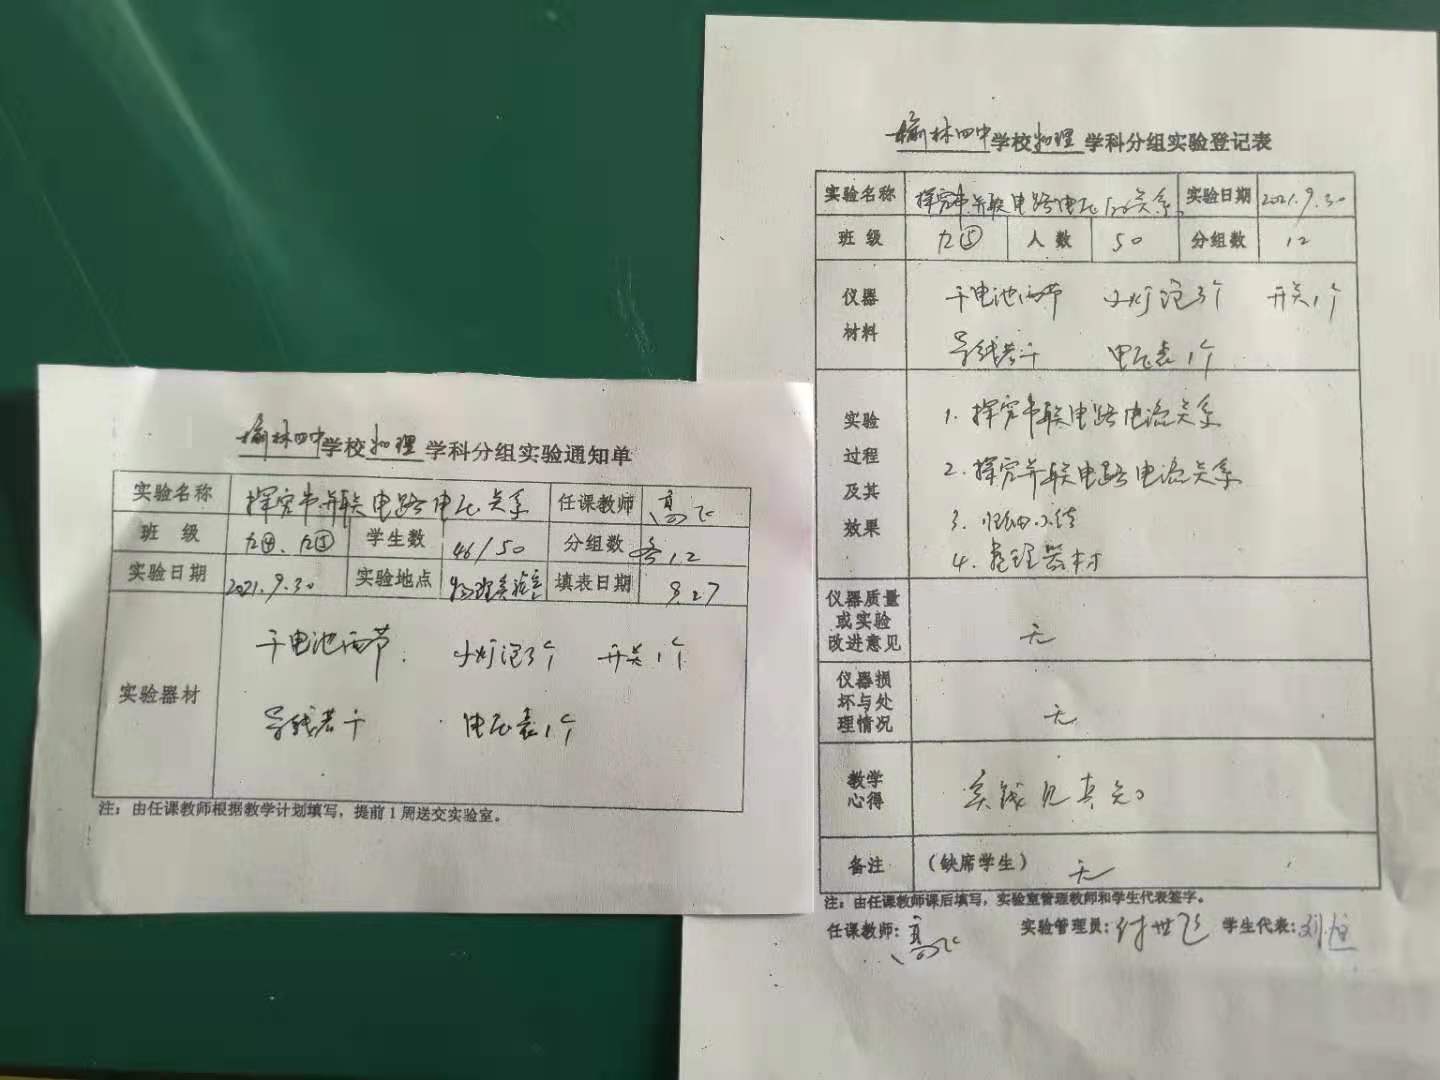 榆林四中学校物理学科分组实验通知单
实验名称 探究串并联电路电压关系 任课教师 高飞
班 级 九④、九⑤ 学生数 46/50 分组数 各12
实验日期 2021.9.30 实验地点 物理实验室 填表日期 9.27
实验器材
干电池两节. 小灯泡3个 开关1个
导线若干 电压表1个
注：由任课教师根据教学计划填写，提前1周送交实验室。
榆林四中学校物理学科分组实验登记表
实验名称 探究串并联电路电压的关系 实验日期 2021.9.30
班 级 九⑤ 人 数 50 分组数 12
仪器
材料
干电池两节 小灯泡3个 开关1个
导线若干 电压表1个
实验
过程
及其
效果
1. 探究串联电路电流关系
2. 探究并联电路电流关系
3. 归纳小结
4. 整理器材
仪器质量
或实验
改进意见
无
仪器损
坏与处
理情况
无
教学
心得
实践见真知
备注 （缺席学生） 无
注：由任课教师课后填写，实验室管理教师和学生代表签字。
任课教师：高飞 实验管理员：付世飞 学生代表：刘